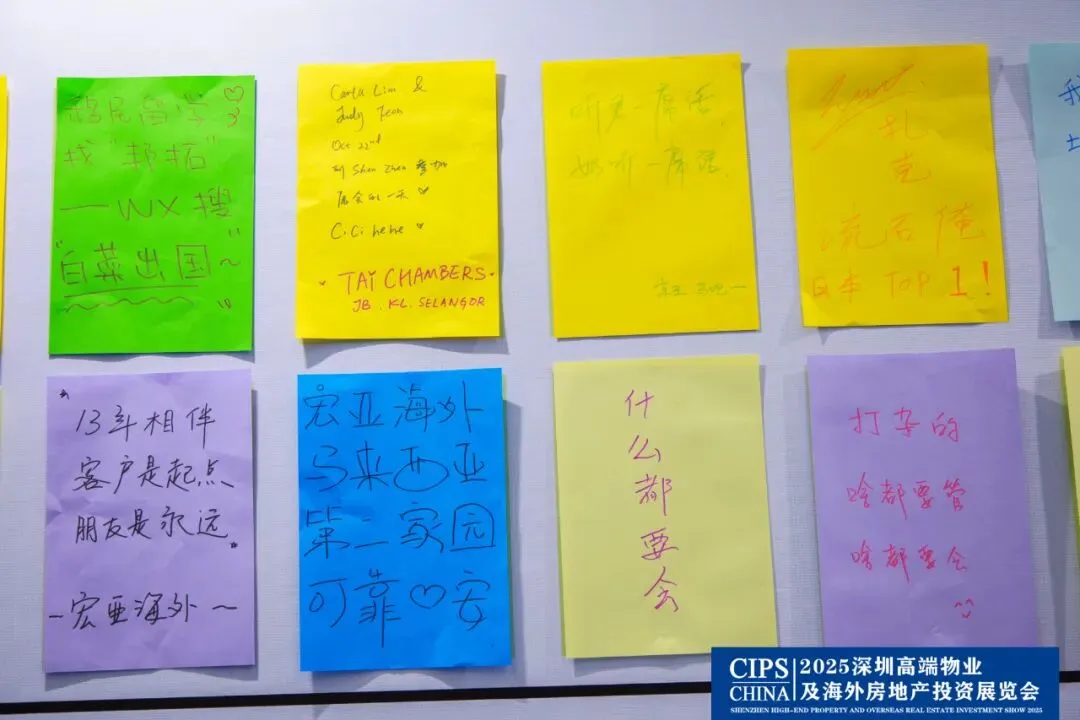 移民留学♡
找"邦拓"
—WX搜
"白菜出国"~
Carta Lim &
Judy Teon
Oct 22nd
到 Shen Zhen 参加
展会的一天♡
Ci.Ci hehe ♡
TAI CHAMBERS
JB. KL. SELANGOR
听君一席话,
如听一席话.
扎
克
日本 TOP 1!
13年相伴
客户是起点
朋友是永远
-宏亚海外~
宏亚海外
马来西亚
第二家园
可靠♡安
什
么
都
要
会
打杂的
啥都要管
啥都要会
^^
我
CIPS
CHINA
2025深圳高端物业
及海外房地产投资展览会
SHENZHEN HIGH-END PROPERTY AND OVERSEAS REAL ESTATE INVESTMENT SHOW 2025